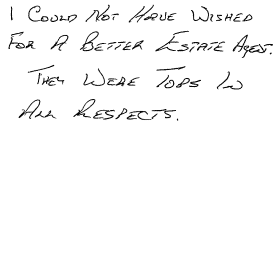 I COULD NOT HAVE WISHED
FOR A BETTER ESTATE AGENT.
THEY WERE TOPS IN
ALL RESPECTS.